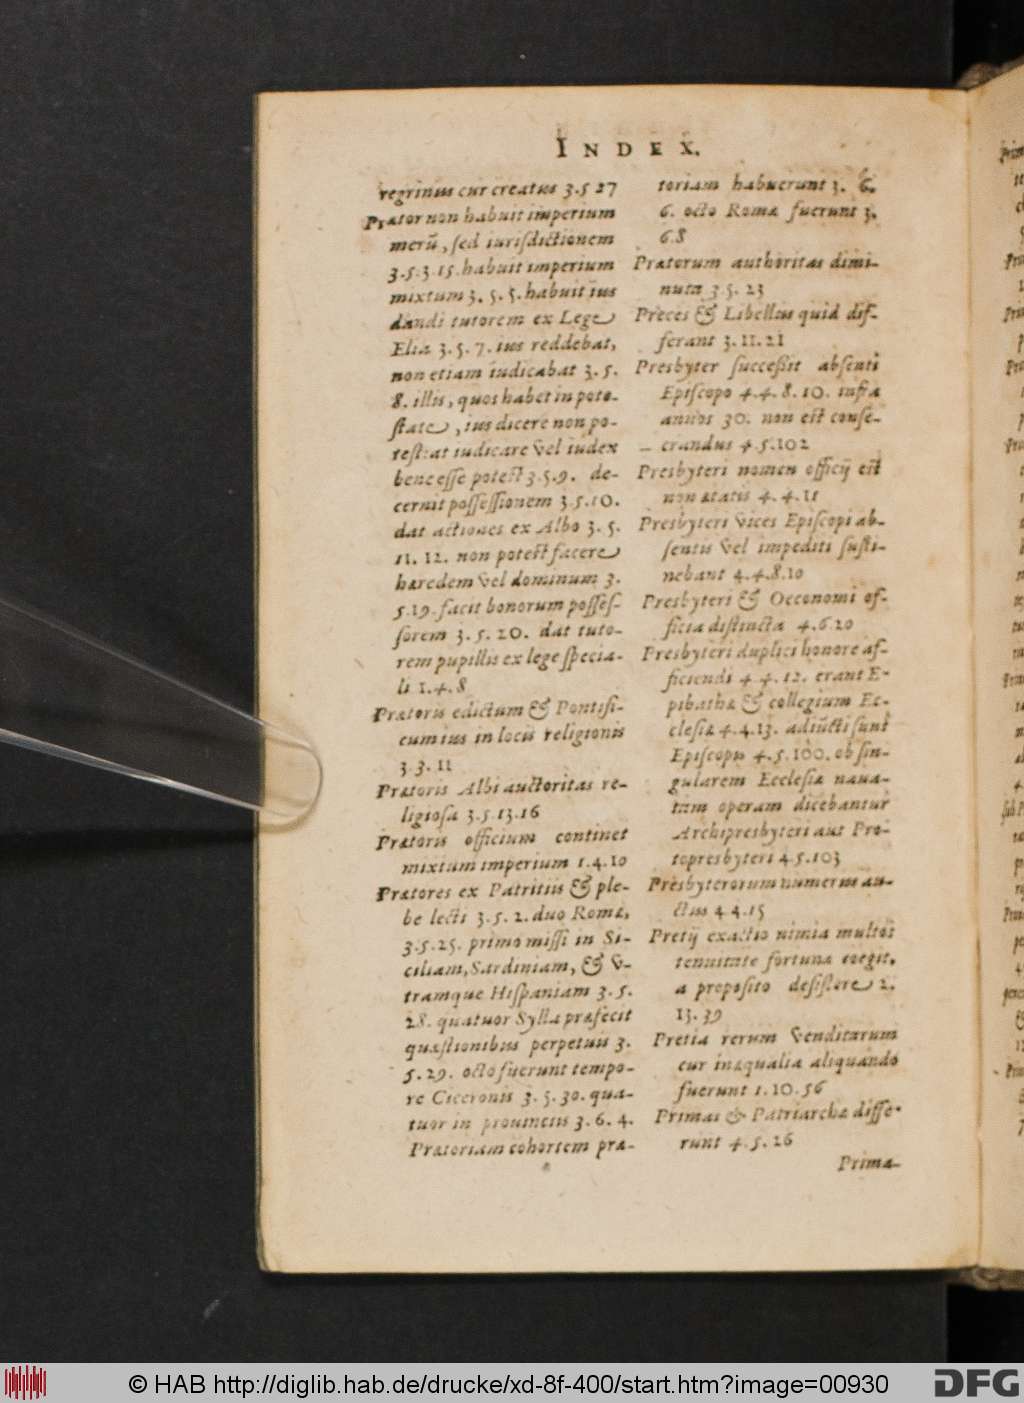 INDEX.
regrinus cur creatus 3.5 27
Prætor non habuit imperium
merū, sed iurisdictionem
3.5.3.15. habuit imperium
mixtum 3. 5. 5. habuit ius
dandi tutorem ex Lege
Elia 3.5.7. ius reddebat,
non etiam iudicabat 3.5.
8. illis, quos habet in pote-
state, ius dicere non po-
rest: at iudicare vel iudex
bene esse potest 3.5.9. de-
cernit possessionem 3.5.10.
dat actiones ex Albo 3.5.
11. 12. non potest facere
hæredem vel dominum 3.
5.19. facit bonorum posses-
sorem 3.5.20. dat tuto-
rem pupillis ex lege specia-
li 1.4.8
Prætoris edictum & Pontifi-
cum ius in locis religionis
3.3.11
Prætoris Albi auctoritas re-
ligiosa 3.5.13.16
Prætoris officium continet
mixtum imperium 1.4.10
Prætores ex Patritiis & ple-
be lecti 3.5.2. duo Romæ,
3.5.25. primo missi in Si-
ciliam, Sardiniam, & v-
tramque Hispaniam 3.5.
28. quatuor Sylla præfecit
quæstionibus perpetuis 3.
5.29. octo fuerunt tempo-
re Ciceronis 3.5.30. qua-
tuor in prouinciis 3.6.4.
Prætoriam cohortem præ-
toriam habuerunt 3. 6.
6. octo Romæ fuerunt 3.
6.8
Prætorum authoritas dimi-
nuta 3.5.23
Preces & Libellus quid dif-
ferant 3.11.21
Presbyter successit absenti
Episcopo 4.4.8.10. infra
annos 30. non est conse-
crandus 4.5.102
Presbyteri nomen officij est
non ætatis 4.4.11
Presbyteri vices Episcopi ab-
sentis vel impediti susti-
nebant 4.4.8.10
Presbyteri & Oeconomi of-
ficia distincta 4.6.20
Presbyteri duplici honore af-
ficiendi 4.4.12. erant E-
pibathæ & collegium Ec-
clesiæ 4.4.13. adiūcti sunt
Episcopis 4.5.100. ob sin-
gularem Ecclesiæ naua-
tam operam dicebantur
Archipresbyteri aut Pro-
topresbyteri 4.5.103
Presbyterorum numerus au-
ctus 4.4.15
Pretij exactio nimia multos
tenuitate fortunæ coegit,
a proposito desistere 2.
13.39
Pretia rerum venditarum
cur inæqualia aliquando
fuerunt 1.10.56
Primas & Patriarcha diffe-
runt 4.5.26
Prima-
© HAB http://diglib.hab.de/drucke/xd-8f-400/start.htm?image=00930
DFG